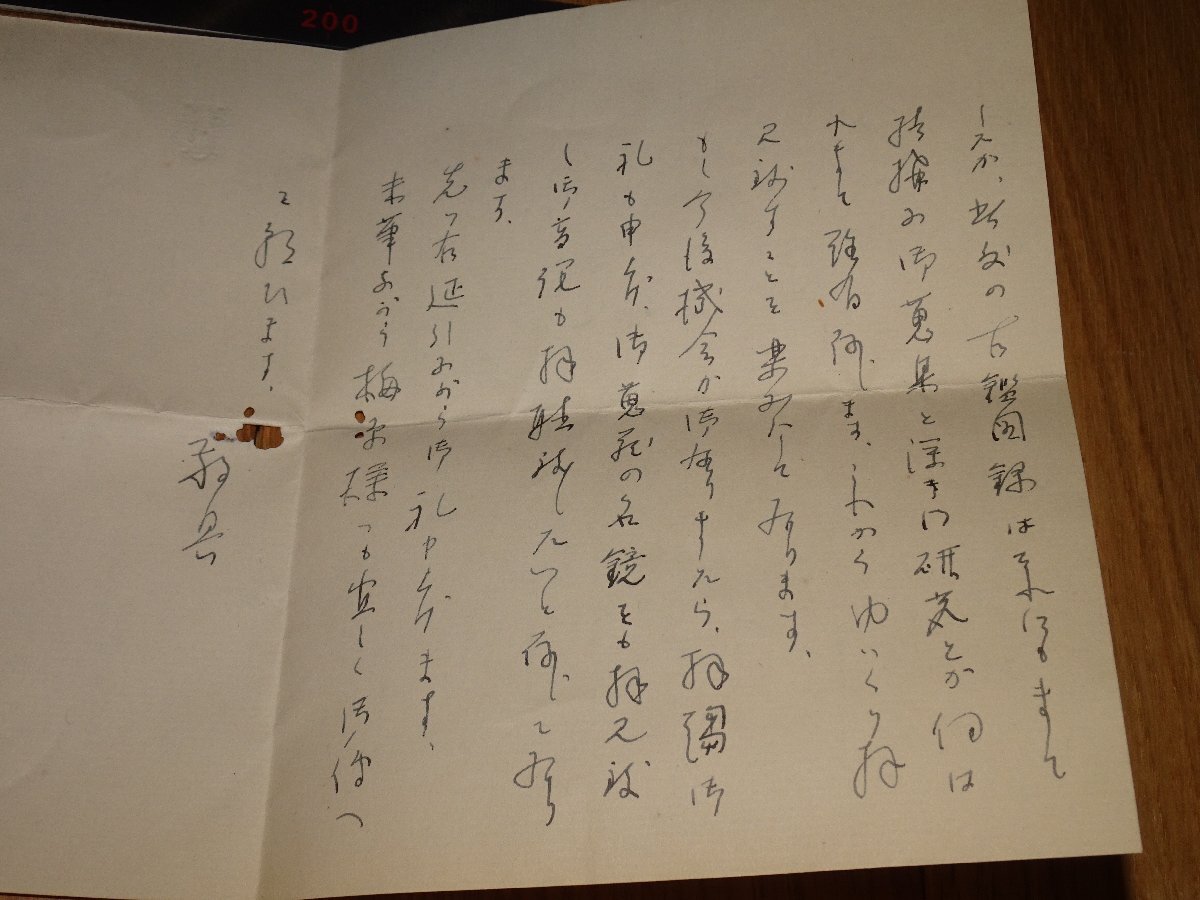 200
したが、貴殿の古鑑図録は予にもまして
結構な御蒐集と深き御研究とが伺は
れまして難有存じます、これからゆっくり拝
見致すことを楽みにして居ります。
もし今後機会が御座りましたら、拝謁御
礼も申上げ、御蒐蔵の名鏡をも拝見致
し御高説も拝聴致したいと存じて居り
ます。
先は右延引ながら御礼申上げます、
末筆ながら梅原様へも宜しく御伝へ
を願ひます。
敬具